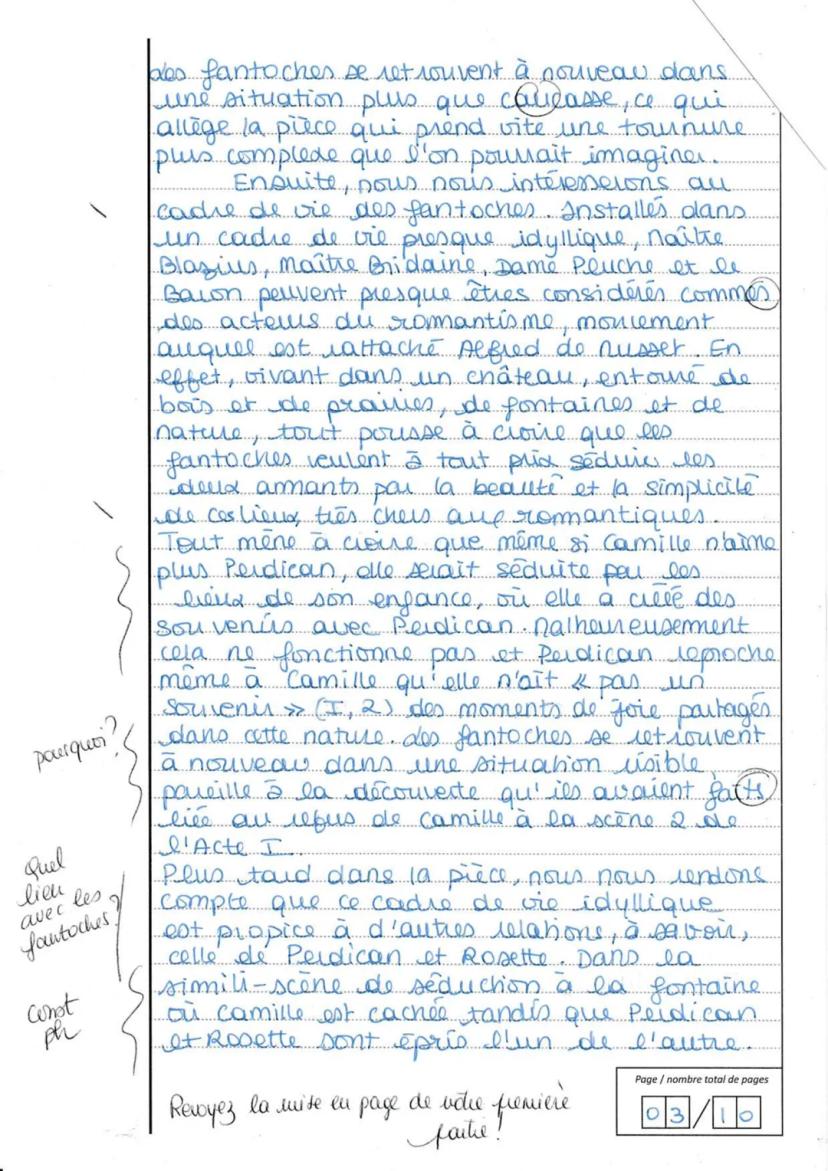 Les fantoches se retrouvent à nouveau dans
une situation plus que caucasse, ce qui
allège la pièce qui prend vite une tournure
plus complexe que l'on pourrait imaginer.
Ensuite, nous nous intéresserons au
cadre de vie des fantoches. Installés dans
un cadre de vie presque idyllique, Maître
Blazius, Maître Bridaine, Dame Pluche et le
Baron peuvent presque êtres considérés commes
des acteurs du rommantisme, mouvement
auquel est rattaché Alfred de Musset. En
effet, vivant dans un château, entouré de
bois et de prairies, de fontaines et de
nature, tout pousse à croire que les
fantoches veulent à tout prix séduire les
deux ammants par la beauté et la simplicité
de ces lieux, très chers aux rommantiques.
Tout mène à croire que même si Camille n'aime
plus Perdican, elle serait séduite par les
lieux de son enfance, où elle a créé des
souvenirs avec Perdican. Malheureusement
cela ne fonctionne pas et Perdican reproche
même à Camille qu'elle n'ait « pas un
souvenir » (I, 2) des moments de joie partagés
dans cette nature. Les fantoches se retrouvent
à nouveau dans une situation risible,
pareille à la découverte qu'ils avaient faits
pourquoi?
liée au refus de Camille à la scène 2 de
l'Acte I.
Plus tard dans la pièce, nous nous rendons
compte que ce cadre de vie idyllique
est propice à d'autres relations, à savoir,
celle de Perdican et Rosette. Dans la
Quel
lien
avec les
fantoches?
simili-scène de séduction à la fontaine
où Camille est cachée tandis que Perdican
et Rosette sont épris l'un de l'autre.
const
ph
Revoyez la mise en page de votre première
partie!
Page / nombre total de pages
03/10